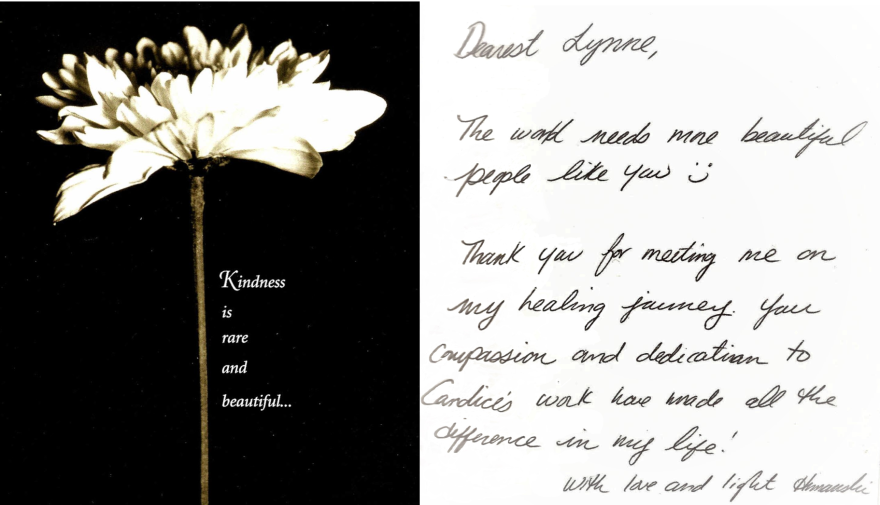 Kindness
is
rare
and
beautiful...
Dearest Lynne,
The world needs more beautiful
people like you :)
Thank you for meeting me on
my healing journey. Your
compassion and dedication to
Candice's work have made all the
difference in my life!
with love and light